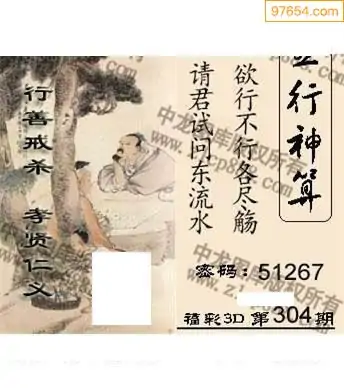 97654.com
行善戒杀 孝贤仁义
行神算
欲行不行各尽觞
请君试问东流水
密码：51267
福彩3D 第304期
中龙图库版权所有
中龙图库版权所有